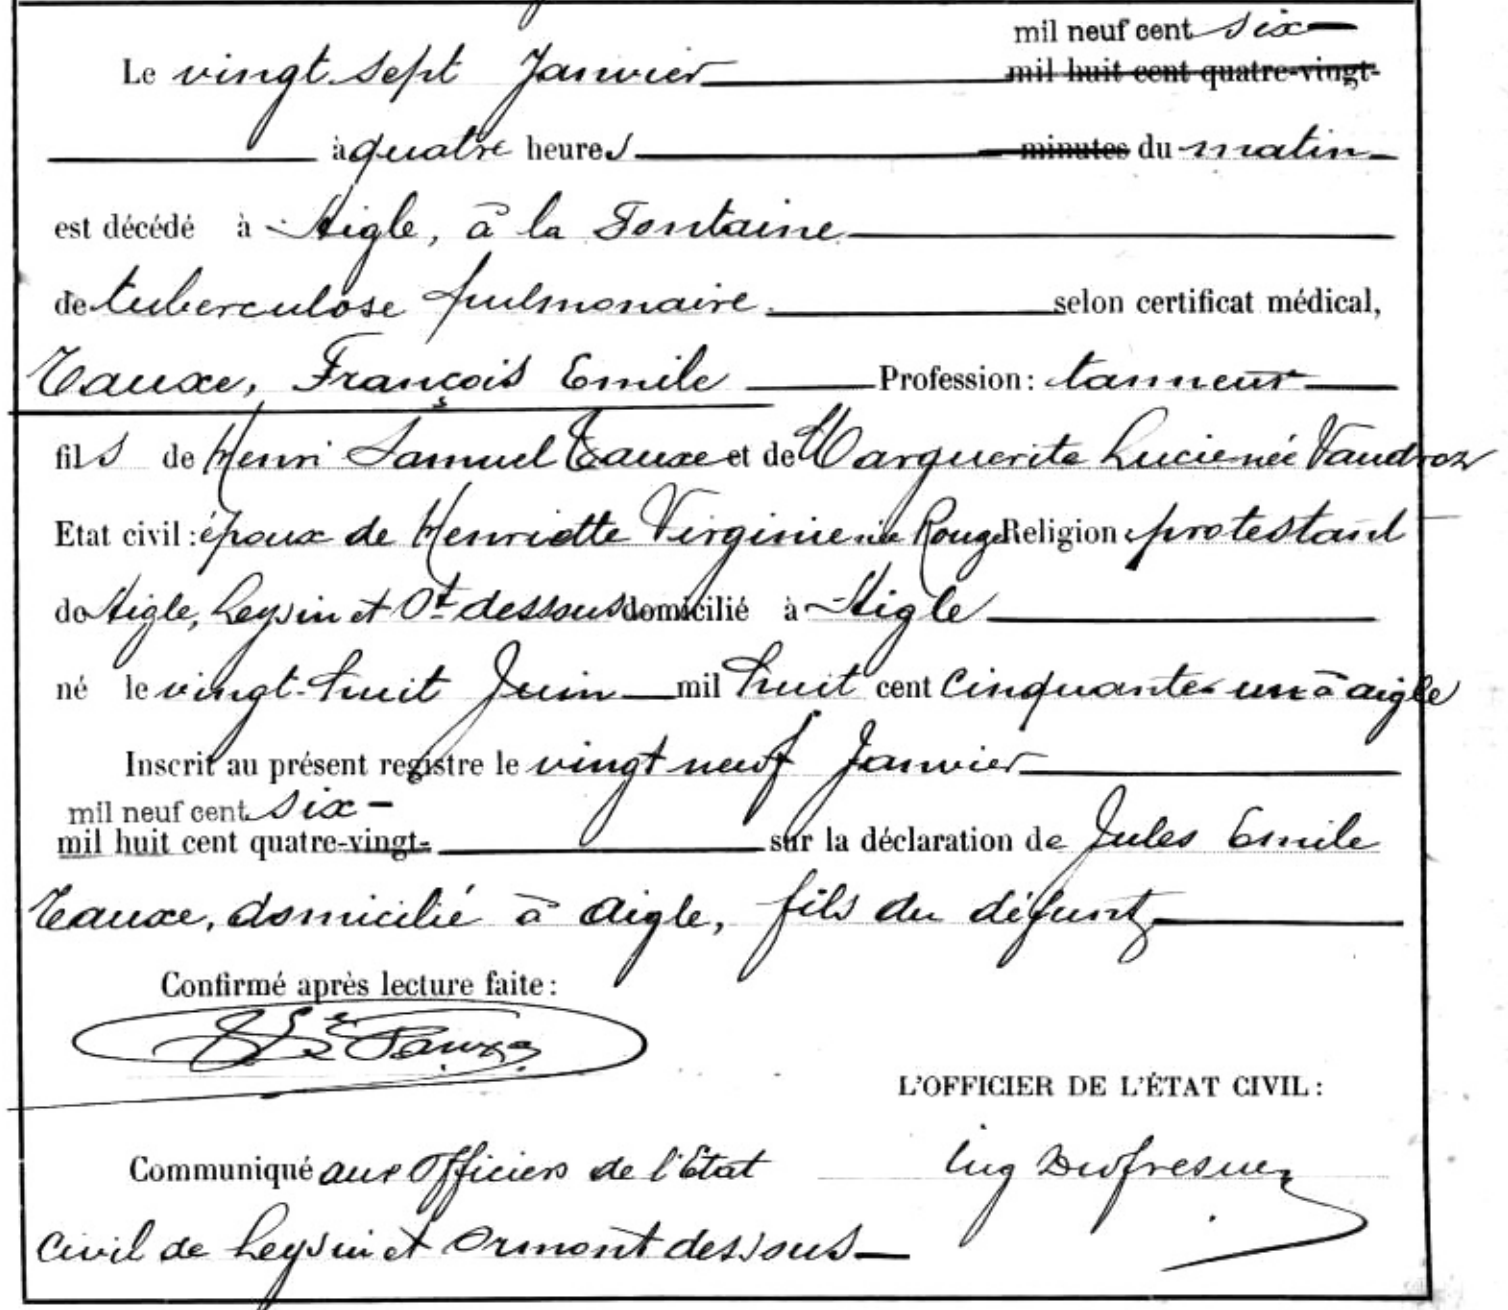 mil neuf cent six
Le vingt sept Janvier mil huit cent quatre-vingt-
à quatre heures minutes du matin
est décédé à Aigle, à la Fontaine
de tuberculose pulmonaire. selon certificat médical,
Tauxe, François Emile Profession: tanneur
fils de Henri Samuel Tauxe et de Marguerite Lucie née Vaudroz
Etat civil: époux de Henriette Virginie née Rouge Religion protestant
de Aigle, Leysin et Ot dessous domicilié à Aigle
né le vingt-huit Juin mil huit cent cinquante un à aigle
Inscrit au présent registre le vingt neuf Janvier
mil neuf cent six
mil huit cent quatre-vingt- sur la déclaration de Jules Emile
Tauxe, domicilié à Aigle, fils du défunt
Confirmé après lecture faite:
Tauxe
L'OFFICIER DE L'ÉTAT CIVIL:
Communiqué aux Officiers de l'Etat Eug Dufresne
civil de Leysin et Ormont dessous